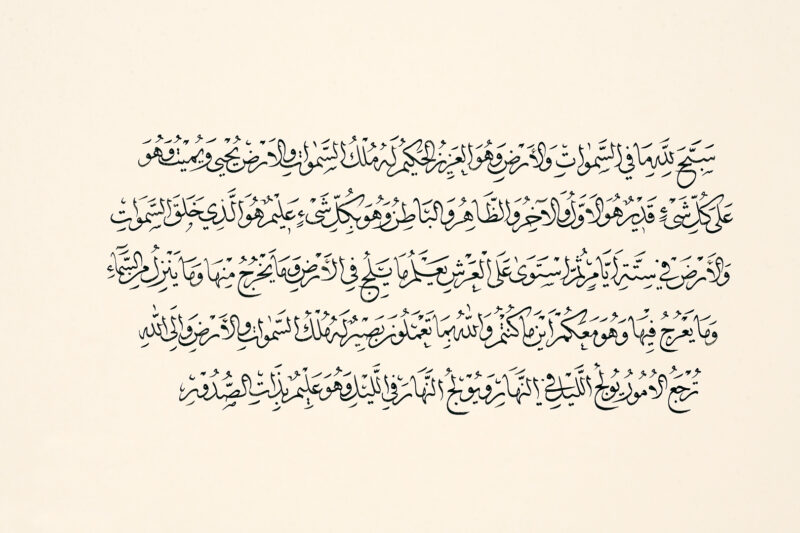 سَبَّحَ لِلَّهِ مَا فِي السَّمٰوَاتِ وَالْأَرْضِ وَهُوَ الْعَزِيزُ الْحَكِيمُ لَهُ مُلْكُ السَّمٰوَاتِ وَالْأَرْضِ يُحْيِي وَيُمِيتُ وَهُوَ
عَلَىٰ كُلِّ شَيْءٍ قَدِيرٌ هُوَ الْأَوَّلُ وَالْآخِرُ وَالظَّاهِرُ وَالْبَاطِنُ وَهُوَ بِكُلِّ شَيْءٍ عَلِيمٌ هُوَ الَّذِي خَلَقَ السَّمٰوَاتِ
وَالْأَرْضَ فِي سِتَّةِ أَيَّامٍ ثُمَّ اسْتَوَىٰ عَلَى الْعَرْشِ يَعْلَمُ مَا يَلِجُ فِي الْأَرْضِ وَمَا يَخْرُجُ مِنْهَا وَمَا يَنْزِلُ مِنَ السَّمَاءِ
وَمَا يَعْرُجُ فِيهَا وَهُوَ مَعَكُمْ أَيْنَ مَا كُنْتُمْ وَاللَّهُ بِمَا تَعْمَلُونَ بَصِيرٌ لَهُ مُلْكُ السَّمٰوَاتِ وَالْأَرْضِ وَإِلَى اللَّهِ
تُرْجَعُ الْأُمُورُ يُولِجُ اللَّيْلَ فِي النَّهَارِ وَيُولِجُ النَّهَارَ فِي اللَّيْلِ وَهُوَ عَلِيمٌ بِذَاتِ الصُّدُورِ